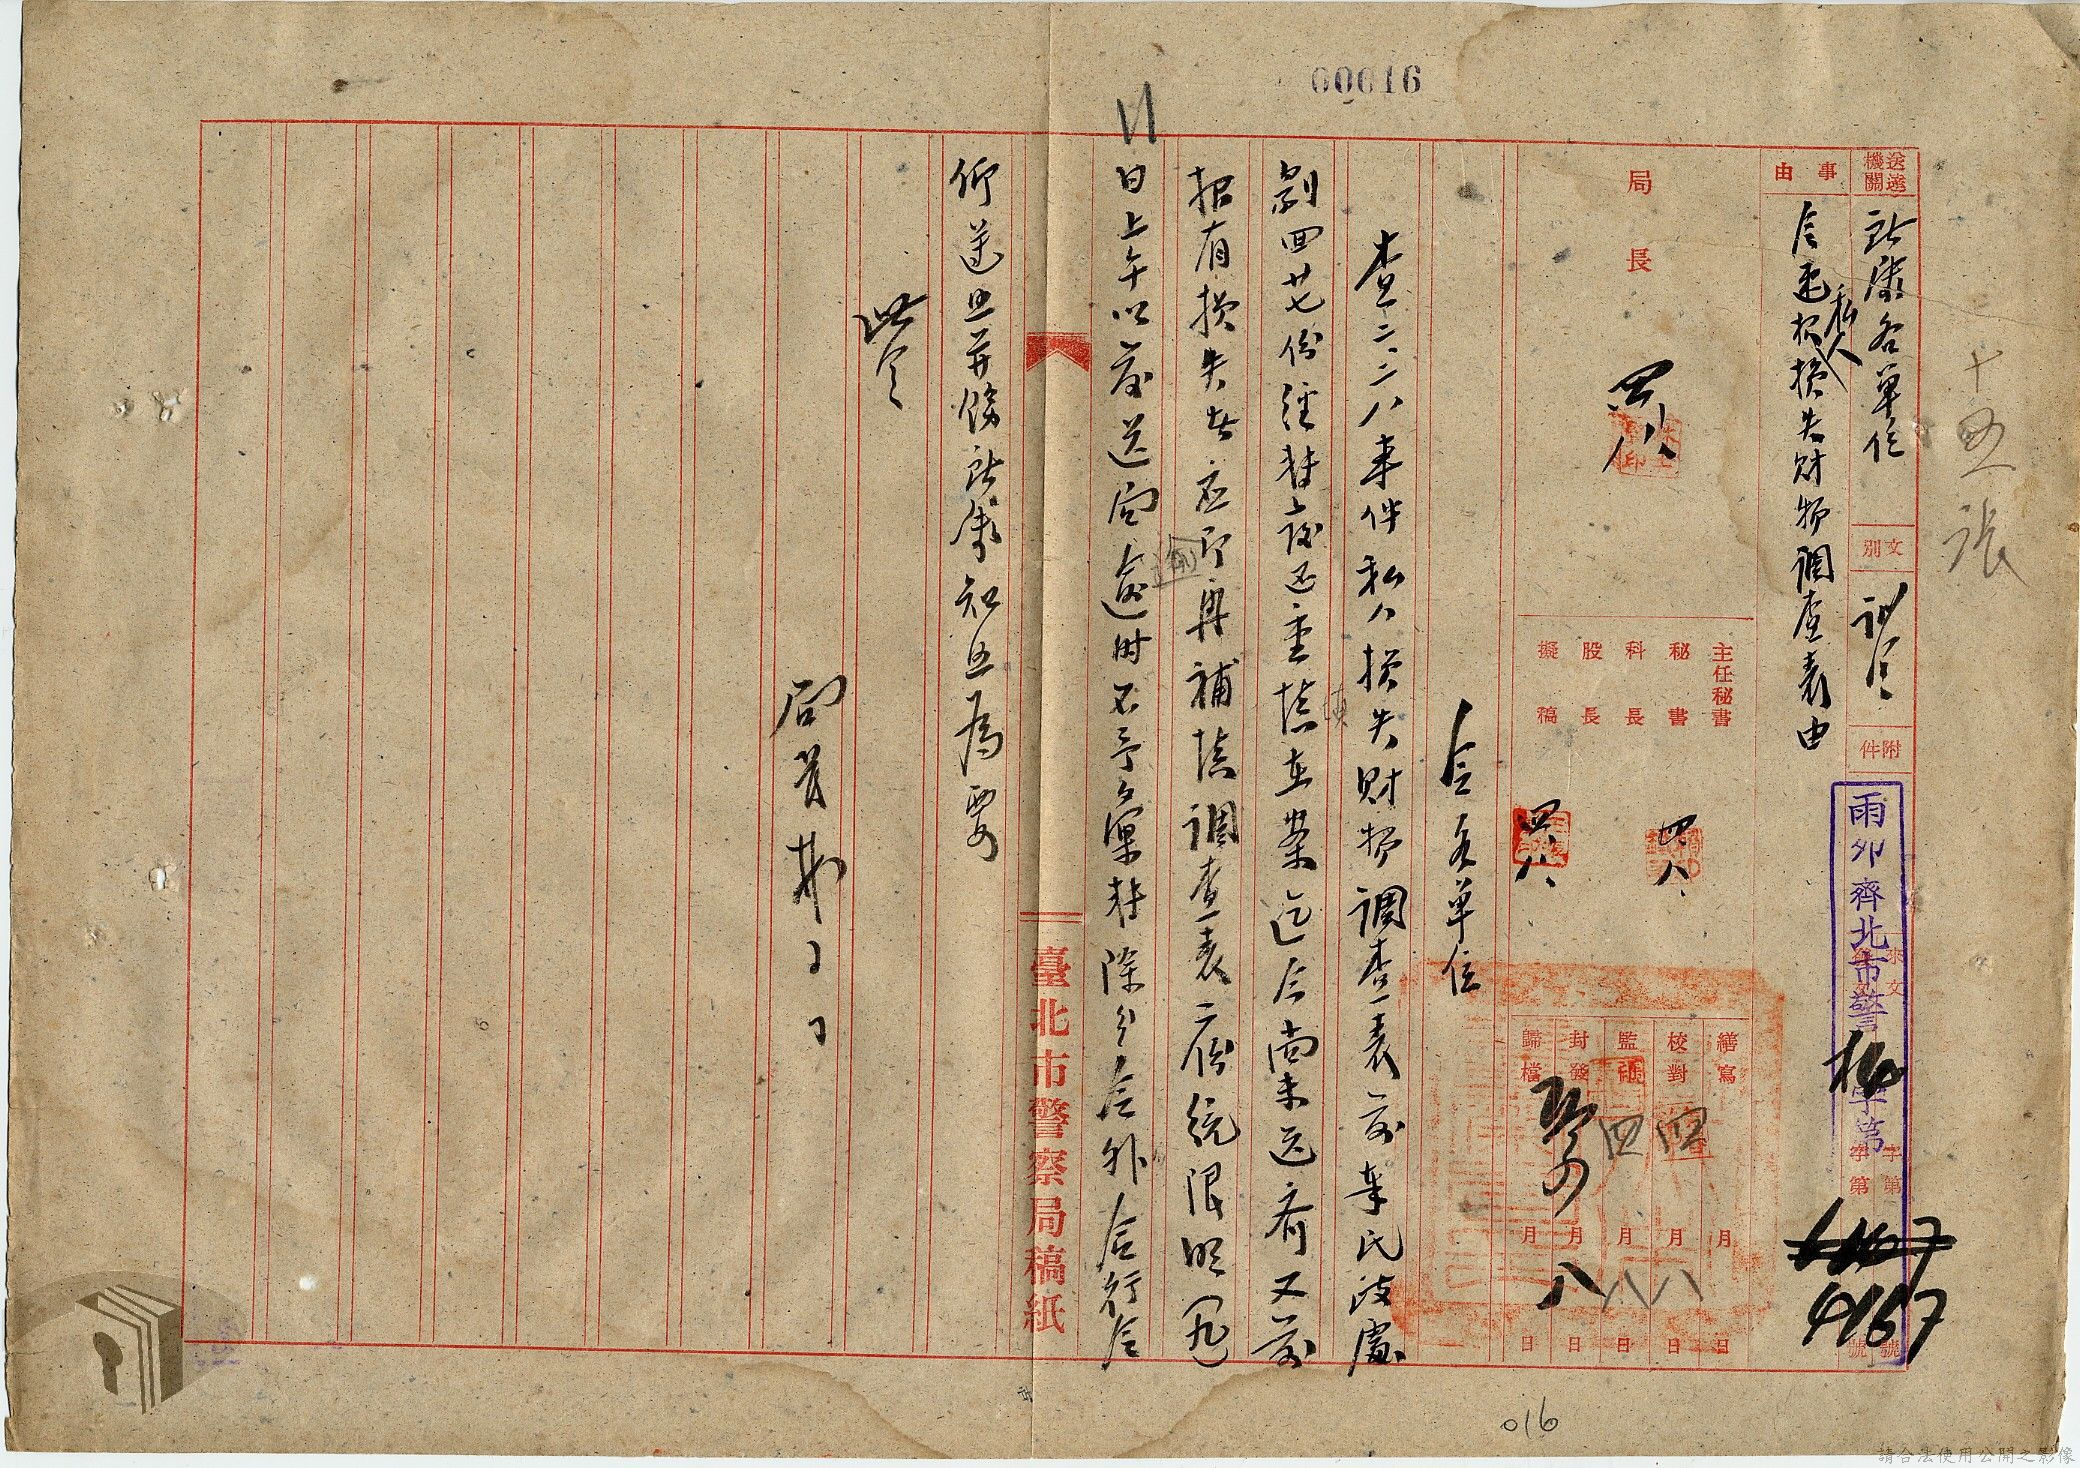 00016
十五張
送達機關
所隊各單位
文別
訓令
附件
事由
令速报私人損失財物調查表由
雨卯齊北市警 字第
4167
來文 字第 號
局長
四八
主任秘書
秘書
科長
股長
擬稿
四八
四八
繕寫 月 日
校對 四月八日
監印 四月八日
封發 月 日
歸檔 月八日
令各單位
查二二八事件私人損失財物調查表前奉民政處
剔回廿七份經轉發还重填在案迄今尚未送齊又前
报有損失者应即再補填調查表二份統限明(九)
日上午以前送局逾時不予彙轉除分令外合行令
仰遵照并飭所屬知照為要
此令
局長
臺北市警察局稿紙
016
請合法使用公開之影像